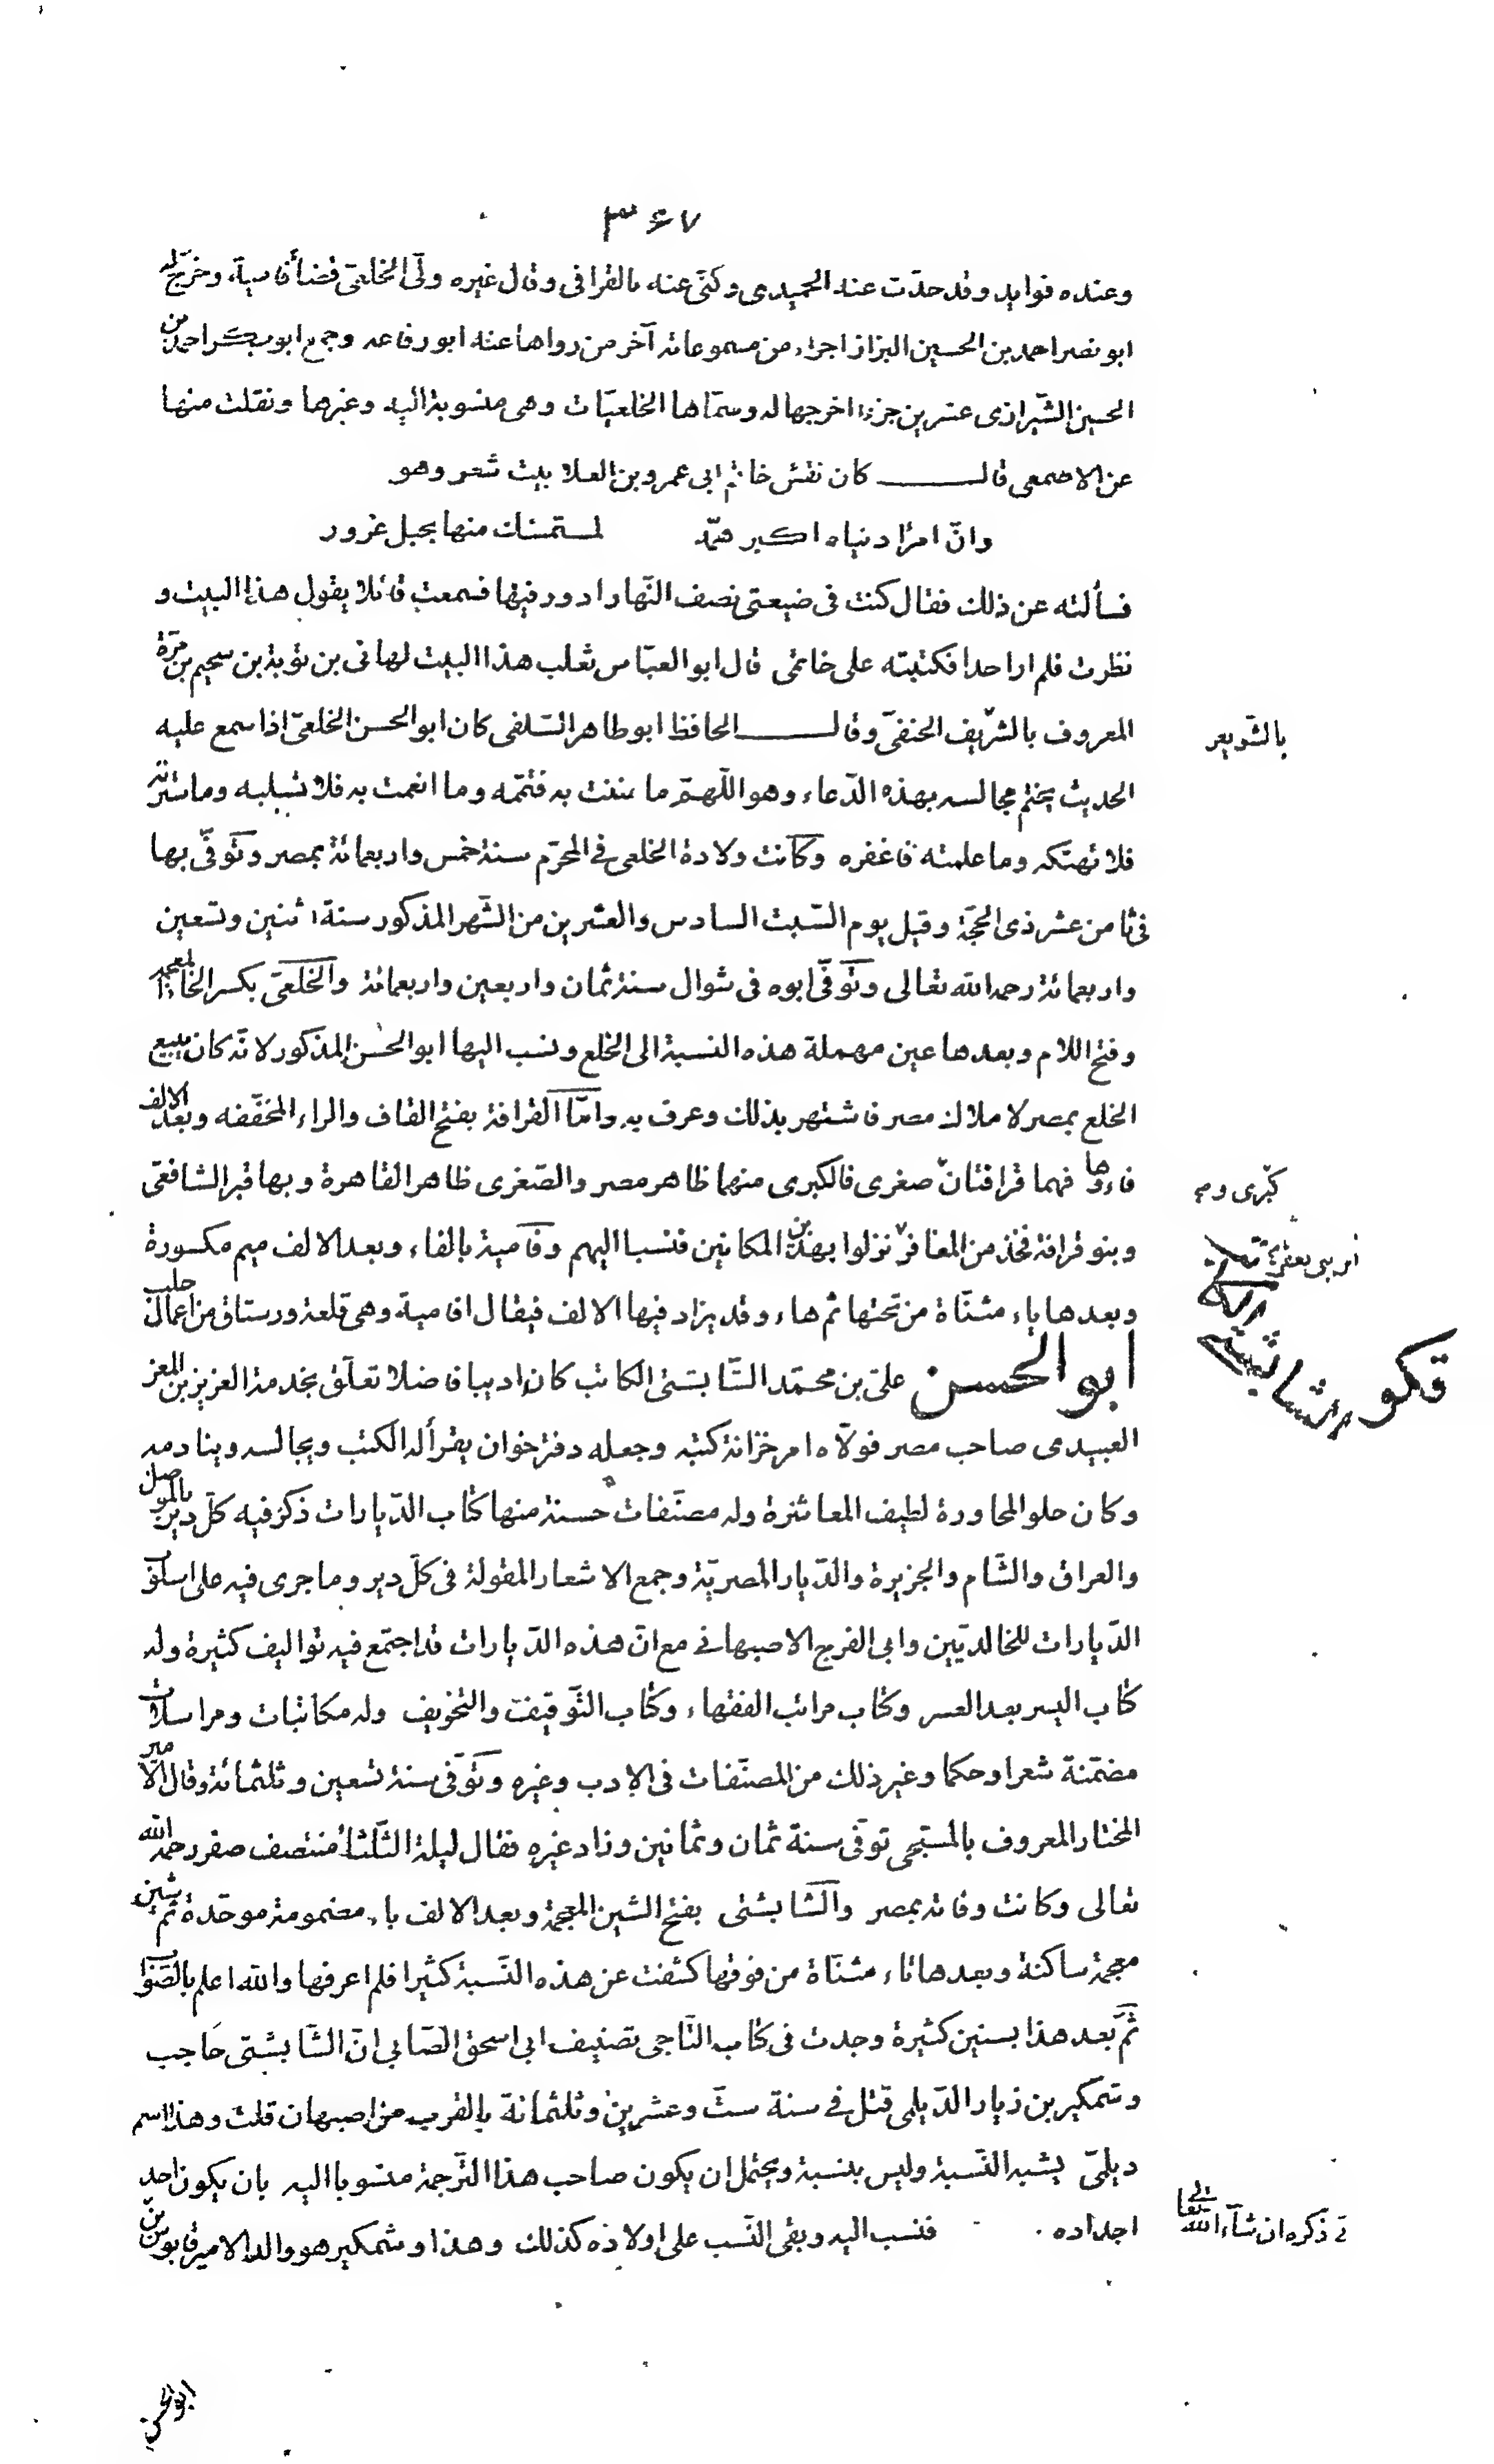 ٣٤٧
وعنده فوايد وقد حدّث عنه الحميدى وكنّى عنه بالقرافى وقال غيره ولّى الخلعىّ قضاء فامية وخرّج له
ابو نصر احمد بن الحسين البزاز اجزاء من مسموعاته آخر من رواها عنه ابو رفاعه وجمع ابو بكر احمد بن
الحسين الشّيرازى عشرين جزءا اخرجها له وسمّاها الخلعيّات وهى منسوبة اليه وغيرها ونقلت منها
عن الاصمعى قال كان نقش خاتم ابى عمرو بن العلا بيت شعر وهو
وانّ امرًا دنياه اكبر همّه لمستمسك منها بحبل غرور
فسألته عن ذلك فقال كنت فى ضيعتى نصف النّهار ادور فيها فسمعت قائلا يقول هذا البيت و
نظرت فلم ار احدا فكتبته على خاتمى قال ابو العبّاس ثعلب هذا البيت لهانى بن توبة بن سحيم بن مرّة
المعروف بالشّريف الحنفىّ وقال الحافظ ابو طاهر السّلفى كان ابو الحسن الخلعىّ اذا سمع عليه
بالشّويعر
الحديث يختم مجالسه بهذه الدّعاء وهو اللّهمّ ما مننت به فتمّمه وما انعمت به فلا تسلبه وما سترته
فلا تهتكه وما علمته فاغفره وكانت ولادة الخلعى فى المحرّم سنة خمس واربعمائة بمصر وتوفّى بها
فى ثامن عشر ذى الحجّة وقيل يوم السّبت السادس والعشرين من الشّهر المذكور سنة اثنين وتسعين
واربعمائة رحمه الله تعالى وتوفّى ابوه فى شوال سنة ثمان واربعين واربعمائة والخلعىّ بكسر الخاء المعجمه
وفتح اللام وبعدها عين مهملة هذه النسبة الى الخلع ونسب اليها ابو الحسن المذكور لانّه كان يبيع
الخلع بمصر لاملاك مصر فاشتهر بذلك وعرف به وامّا القرافة بفتح القاف والراء المخفّفه وبعد الالف
فاء وها فهما قرافتان صغرى فالكبرى منهما ظاهر مصر والصّغرى ظاهر القاهرة وبها قبر الشافعىّ
كبرى و
وبنو قرافة فخذ من المعافر نزلوا بهذين المكانين فنسبا اليهم وفامية بالفاء وبعد الالف ميم مكسورة
ابن يعفر
وبعدها ياء مثنّاة من تحتها ثم هاء وقد يزاد فيها الالف فيقال افامية وهى قلعة ورستاق من اعمال حلب
ابو الحسن علىّ بن محمّد الشّابشتى الكاتب كان اديبا فاضلا تعلّق بخدمة العزيز بن المعز
الشابشتى
العبيدى صاحب مصر فولّاه امر خزانة كتبه وجعله دفتر خوان يقرأ له الكتب ويجالسه وينادمه
وكان حلو المحاورة لطيف المعاشرة وله مصنّفات حسنة منها كتاب الدّيارات ذكر فيه كلّ دير بالموصل
والعراق والشّام والجزيرة والدّيار المصريّة وجمع الاشعار المقولة فى كلّ دير وما جرى فيه على اسلوب
الدّيارات للخالديّين وابى الفرج الاصبهانى مع انّ هذه الدّيارات قد اجتمع فيه تواليف كثيرة وله
كتاب اليسر بعد العسر وكتاب مراتب الفقهاء وكتاب التّوقيف والتّخويف وله مكاتبات ومراسلات
مضمّنة شعرا وحكما وغير ذلك من المصنّفات فى الادب وغيره وتوفّى سنة تسعين وثلثمائة وقال الامير
المختار المعروف بالمسبّحى توفى سنة ثمان وثمانين وزاد غيره فقال ليلة الثّلثاء منتصف صفر رحمه الله
تعالى وكانت وفاته بمصر والشّابشتى بفتح الشين المعجمة وبعد الالف باء مضمومة موحّدة ثم شين
معجمة ساكنة وبعدها تاء مثنّاة من فوقها كشفت عن هذه النّسبة كثيرا فلم اعرفها والله اعلم بالصّواب
ثمّ بعد هذا بسنين كثيرة وجدت فى كتاب التّاجى تصنيف ابى اسحق الصّابى انّ الشّابشتى حاجب
وشمكير بن زيار الدّيلمى قتل فى سنة ستّ وعشرين وثلثمائة بالقرب من اصبهان قلت وهذا اسم
ديلمىّ يشبه النّسبة وليس بنسبة ويحتمل ان يكون صاحب هذا التّرجمة منسوبا اليه بان يكون احد
اجداده فنسب اليه وبقى النّسب على اولاده كذلك وهذا وشمكير هو والد الامير قابوس بن
ذكره ان شاء الله تعالى
ابو الحسن